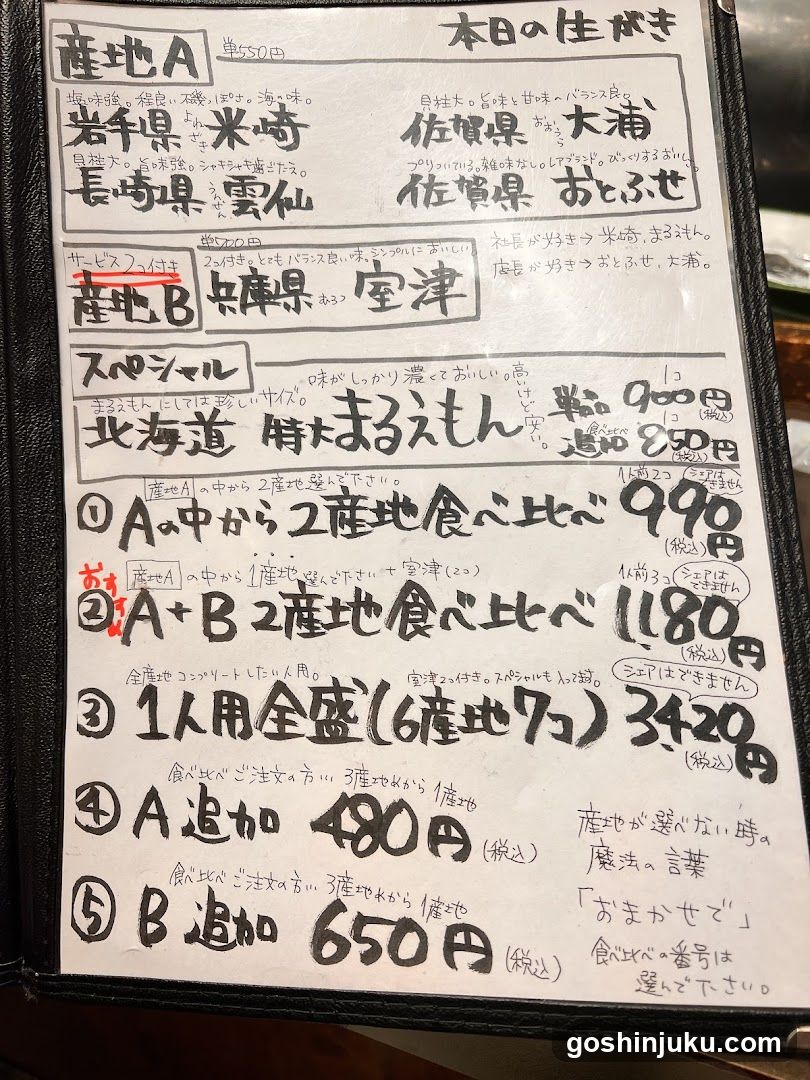 本日の生がき
産地A 単550円
塩味強。程良い磯っぽさ。海の味。
岩手県 よねざき 米崎
貝柱大。旨味と甘味のバランス良。
佐賀県 おおうら 大浦
貝柱大。旨味強。シャキシャキ歯ごたえ。
長崎県 うんぜん 雲仙
プリッついている。雑味なし。レアブランド。びっくりするおいしさ。
佐賀県 おとふせ
サービス2コ付き
産地B
単700円
2コ付き。とてもバランス良い味。シンプルにおいしい
兵庫県 むろつ 室津
社長が好き→米崎、まるえもん。
店長が好き→おとふせ、大浦。
スペシャル
味がしっかり濃くておいしい。
まるえもんにしては珍しいサイズ。
高いけど安い。
北海道 特大まるえもん
単品 1コ 900円(税込)
食べ比べ追加 1コ 850円(税込)
産地Aの中から2産地選んで下さい。
1人前2コ シェアはできません
① Aの中から2産地食べ比べ 990円(税込)
おすすめ
産地Aの中から1産地選んで下さい+室津(2コ)
1人前3コ シェアはできません
② A+B 2産地食べ比べ 1,180円(税込)
全産地コンプリートしたい人用。
室津2コ付き。スペシャルも入ってます。
シェアはできません
③ 1人用全盛(6産地7コ) 3,420円(税込)
食べ比べご注文の方… 3産地めから1産地
④ A追加 480円(税込)
食べ比べご注文の方… 3産地めから1産地
⑤ B追加 650円(税込)
産地が選べない時の
魔法の言葉
「おまかせで」
食べ比べの番号は
選んで下さい。
goshinjuku.com